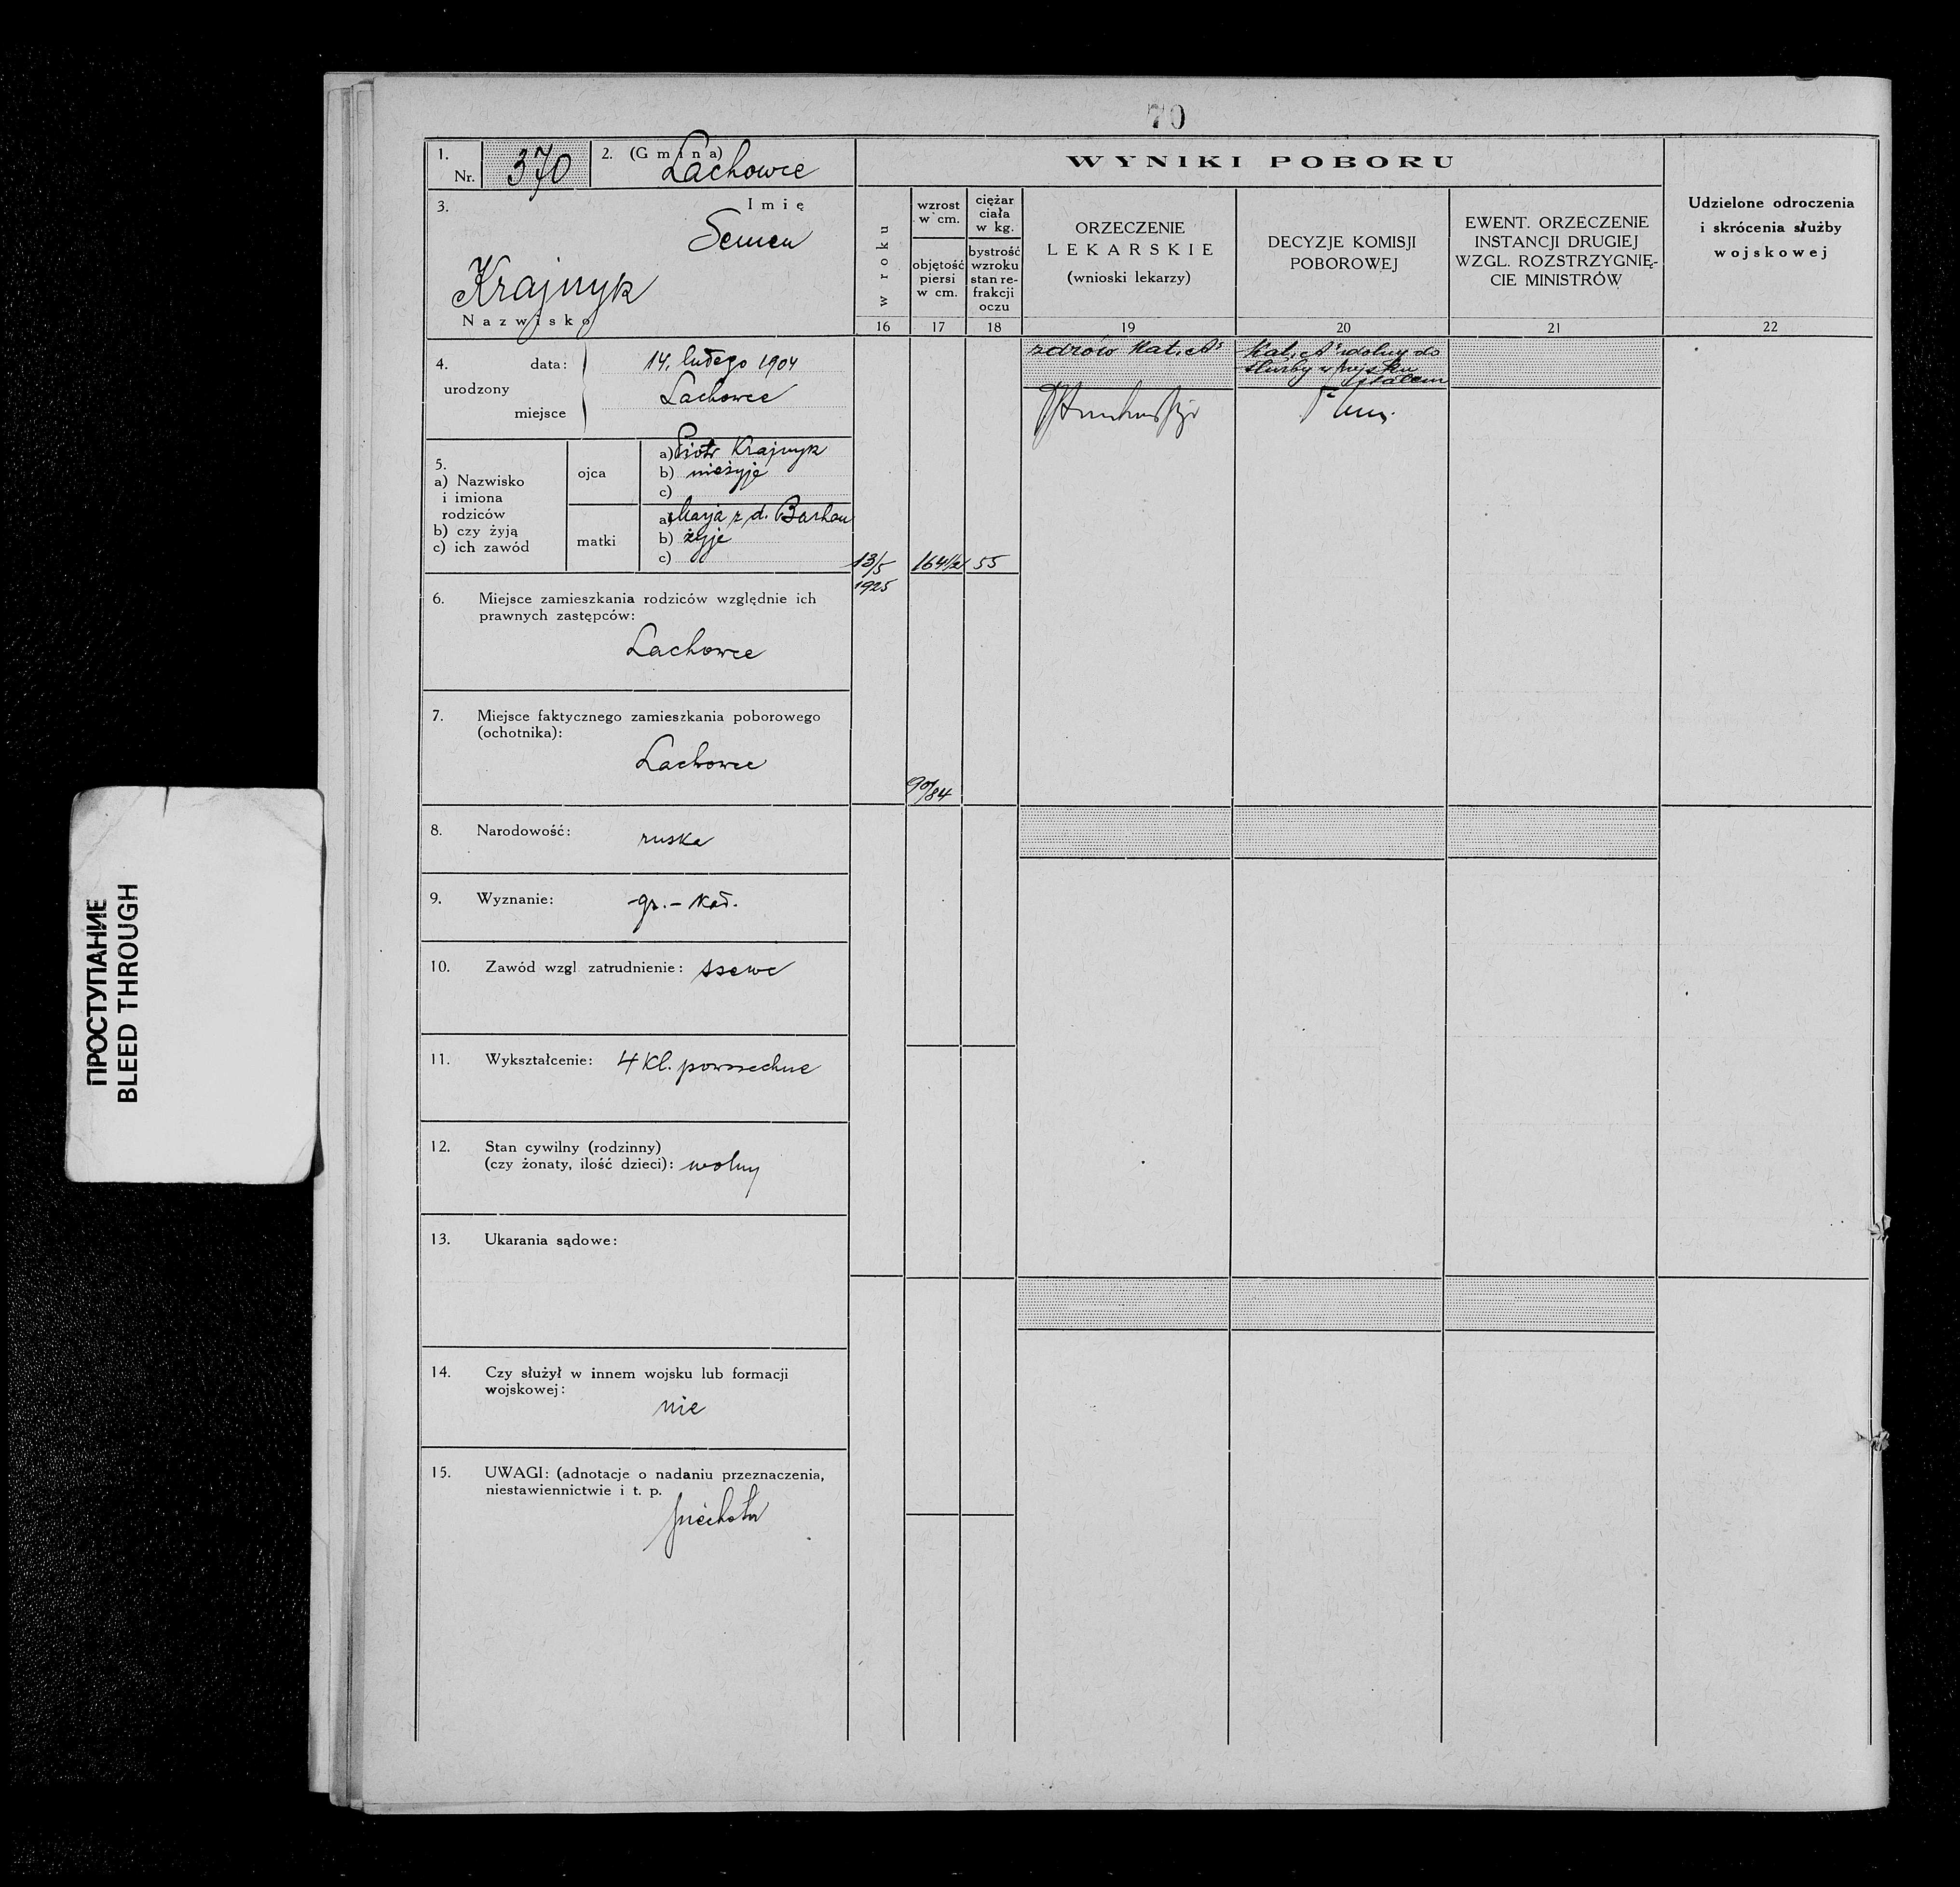 70
1. Nr. 370
2. (Gmina) Lachowce
3. Imię
Semen
Krajnyk
Nazwisko
4. urodzony
data: 14. lutego 1904
miejsce Lachowce
5.
a) Nazwisko
i imiona
rodziców
b) czy żyją
c) ich zawód
ojca
a) Piotr Krajnyk
b) nieżyje
c)
matki
a) Marja z d.
b) żyje
c)
6. Miejsce zamieszkania rodziców względnie ich
prawnych zastępców:
Lachowce
7. Miejsce faktycznego zamieszkania poborowego
(ochotnika):
Lachowce
8. Narodowość: ruska
9. Wyznanie: gr.-kat.
10. Zawód wzgl. zatrudnienie: szewc
11. Wykształcenie: 4 kl. powszechne
12. Stan cywilny (rodzinny)
(czy żonaty, ilość dzieci): wolny
13. Ukarania sądowe:
14. Czy służył w innem wojsku lub formacji
wojskowej:
nie
15. UWAGI: (adnotacje o nadaniu przeznaczenia,
niestawiennictwie i t. p.
piechota
WYNIKI POBORU
w roku
16
wzrost
w cm.
objętość
piersi
w cm.
17
ciężar
ciała
w kg.
bystrość
wzroku
stan re-
frakcji
oczu
18
ORZECZENIE
LEKARSKIE
(wnioski lekarzy)
19
DECYZJE KOMISJI
POBOROWEJ
20
EWENT. ORZECZENIE
INSTANCJI DRUGIEJ
WZGL. ROZSTRZYGNIĘ-
CIE MINISTRÓW
21
Udzielone odroczenia
i skrócenia służby
wojskowej
22
13/5
1925
164 1/2
55
90/84
zdrów Kat. A
Kat. A zdolny do
służby w wojsku
stałem
ПРОСТУПАНИЕ
BLEED THROUGH